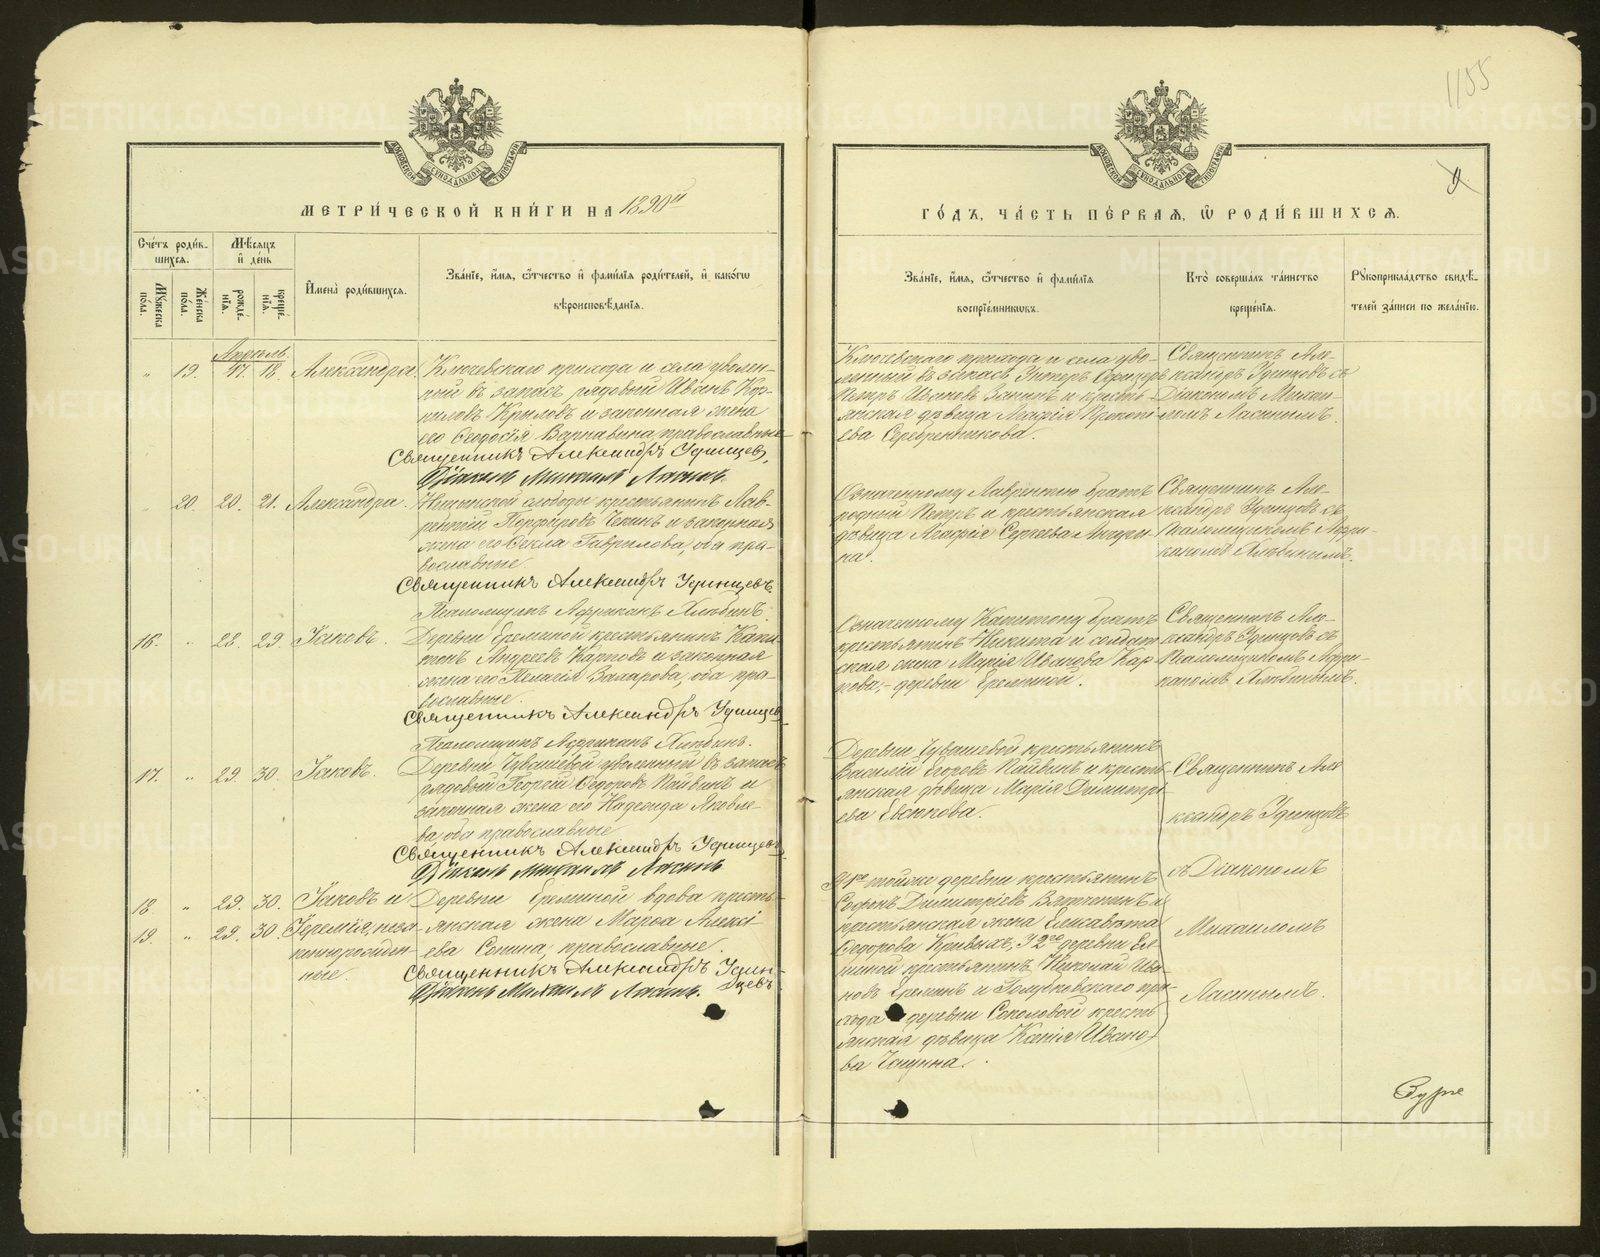 1155
9
МЕТРИ́ЧЕСКОЙ КНИ́ГИ НА 1890й
ГО́ДЪ, ЧА́СТЬ ПЕ́РВАЯ, Ѡ҆ РОДИ́ВШИХСѦ.
Сче́тъ роди́в-
шихсѧ.
Мѣ́сѧцъ
и҆ де́нь
Мꙋ́жеска
по́ла.
Же́нска
по́ла.
рожде́-
нїѧ.
креще́-
нїѧ.
И҆мена̀ роди́вшихсѧ.
Зва́нїе, и҆́мѧ, ѻ҆́тчество и҆ фами́лїѧ роди́телей, и҆ како́гѡ
вѣроисповѣ́данїѧ.
Зва́нїе, и҆́мѧ, ѻ҆́тчество и҆ фами́лїѧ
воспрїе́мникѡвъ.
Кто̀ соверша́лъ та́инство
креще́нїѧ.
Рꙋкоприкла́дство свидѣ́-
телей за́писи по жела́нїю.
Апрѣль.
19. 17. 18. Александра.
Ключевскаго прихода и села уволен-
ный въ запасъ рядовый Иванъ Кор-
ниловъ Крыловъ и законная жена
его Ѳеодосія Варнавина, православные
Священникъ Александръ Удинцевъ,
Діаконъ Михаилъ Ласинъ.
Ключевскаго прихода и села уво-
ленный въ запасъ Юнкеръ
Петръ Ивановъ Занинъ и кресть-
янская дѣвица Агафія Прокопі-
ева Серебренникова.
Священникъ Але-
ксандръ Удинцовъ съ
Діакономъ Михаи-
ломъ Ласинымъ.
20. 20. 21. Александра.
слободы крестьянинъ Лав-
рентій Порфировъ и законная
жена его Ѳекла Гаврилова, оба пра-
вославные.
Священникъ Александръ Удинцевъ
Псаломщикъ Африканъ Хлѣбинъ
Означенному Лаврентію братъ
родный Петръ и крестьянская
дѣвица Агафія Сергѣева
на.
Священникъ Але-
ксандръ Удинцовъ съ
Псаломщикомъ Афри-
каномъ Хлѣбинымъ.
16. 28. 29. Іаковъ.
Деревни Ереминой крестьянинъ Капи-
тонъ Андреевъ Карповъ и законная
жена его Пелагія Захарова, оба пра-
вославные.
Священникъ Александръ Удинцевъ
Псаломщикъ Африканъ Хлѣбинъ.
Означенному Капитону братъ
крестьянинъ Никита и солдат-
ская жена Марія Иванова Кар-
пова, - деревни Ереминой.
Священникъ Але-
ксандръ Удинцовъ съ
Псаломщикомъ Афри-
каномъ Хлѣбинымъ.
17. 29. 30. Іаковъ.
Деревни Чувашевой уволенный въ запасъ
рядовый Георгій Ѳедоровъ Пайвинъ и
законная жена его Надежда Яковле-
ва, оба православные
Священникъ Александръ Удинцевъ
Діаконъ Михаилъ Ласинъ
Деревни Чувашевой крестьянинъ
Василій Егоровъ Пайвинъ и кресть-
янская дѣвица Марія Димитрі-
ева Евсикова.
Священникъ Але-
ксандръ Удинцовъ
съ Діакономъ
Михаиломъ
Ласинымъ.
18. 29. 30. Іаковъ и
19. 29. 30. Іеремія, неза-
коннорожден-
ные.
Деревни Ереминой вдова кресть-
янская жена Марѳа Алексі-
ева Сонина, православные.
Священникъ Александръ Удин-
цевъ
Діаконъ Михаилъ Ласинъ.
У 1го тойже деревни крестьянинъ
Софонъ Димитріевъ и
крестьянская жена Елисавета
Ѳедорова Кривыхъ, У 2го деревни Ере-
миной крестьянинъ Николай Ива-
новъ Ереминъ и при-
хода деревни Соколовой кресть-
янская дѣвица Ксенія Ивано-
ва